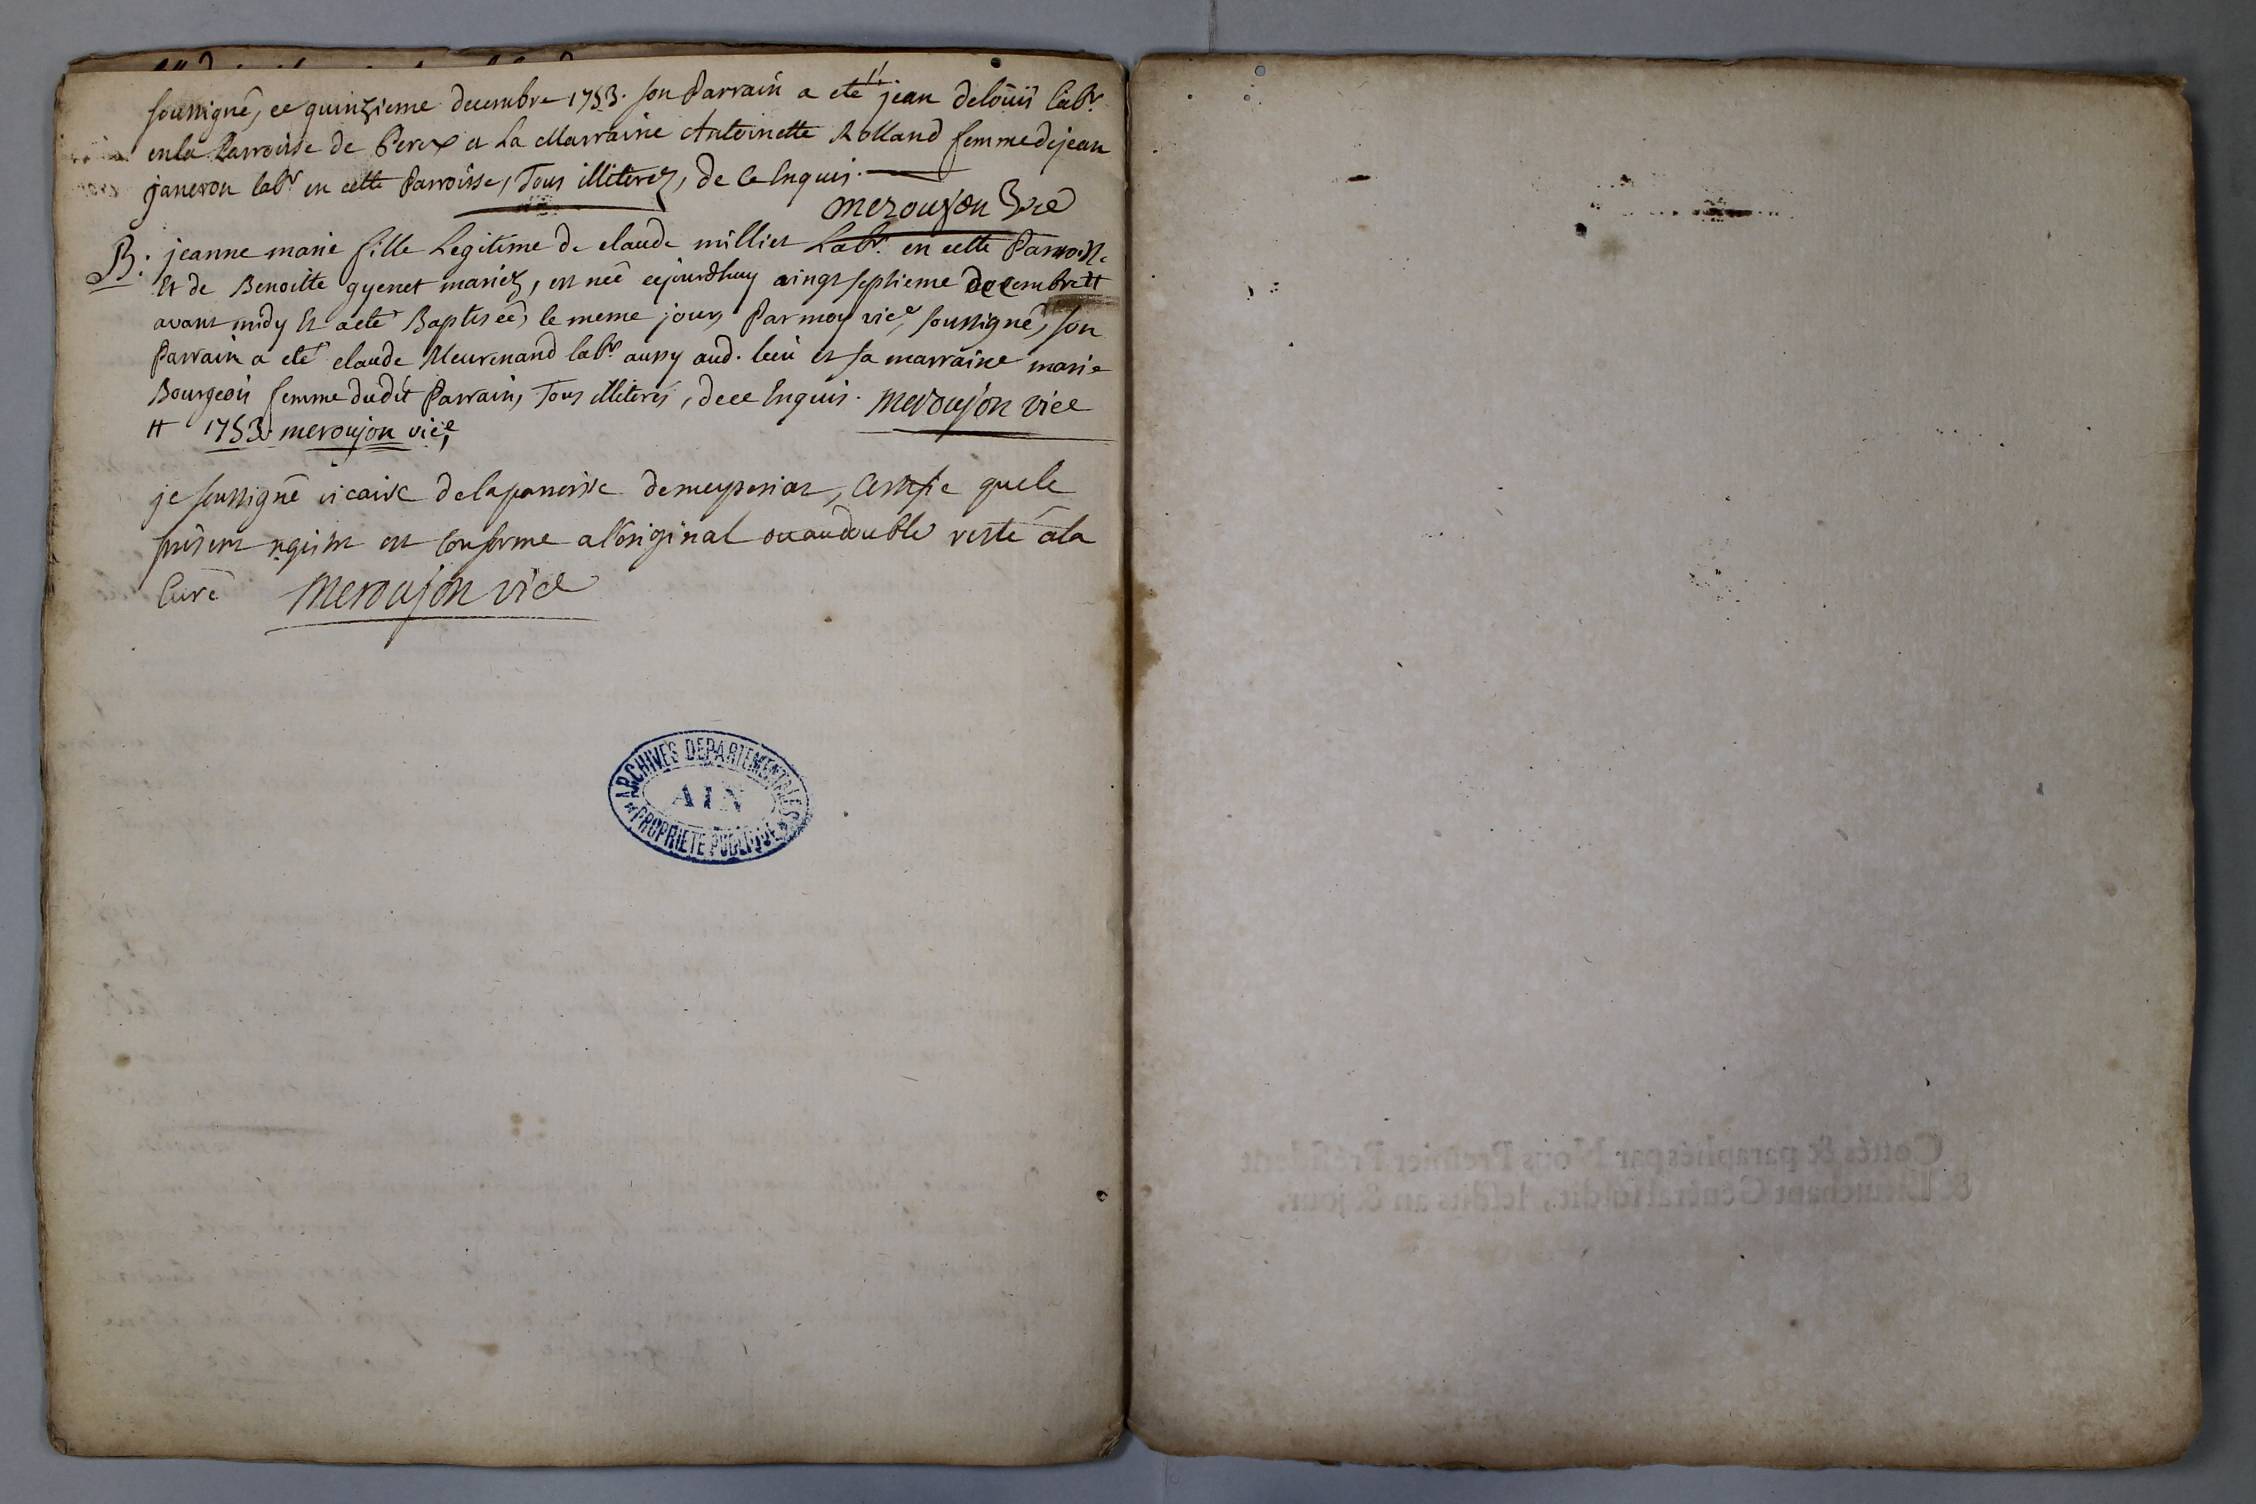 soussigné, ce quinzieme decembre 1753. son Parrain a eté jean deloüis labr.
en la Parroisse de Perex et La Marraine Antoinette Rolland femme de jean
janeron labr en cette Parroisse, Tous illiterez, de ce Enquis.
meroujon vice
B. jeanne marie fille Legitime de claude milliet Labr. en cette Parroisse
Et de Benoitte gyenet mariez, est neé cejourdhuy vingt septieme decembre #
avant midy Et a eté Baptiseé, le meme jour, Par moy vice, soussigné, son
Parrain a eté claude Meurenand labr aussy aud. lieu et sa marraine marie
Bourgeois femme dudit Parrain, Tous illiterés, de ce Enquis. meroujon vice
# 1753. meroujon vice,
je soussigné vicaire de la parroisse de meyseriat, certifie que le
present registre est conforme a l'original ou au double resté a la
Cure meroujon vice
ARCHIVES DEPARTEMENTALES
AIN
PROPRIETE PUBLIQUE
Cottés & paraphés par Nous Premier Président
& Lieutenant Général susdit, lesdits an & jour.